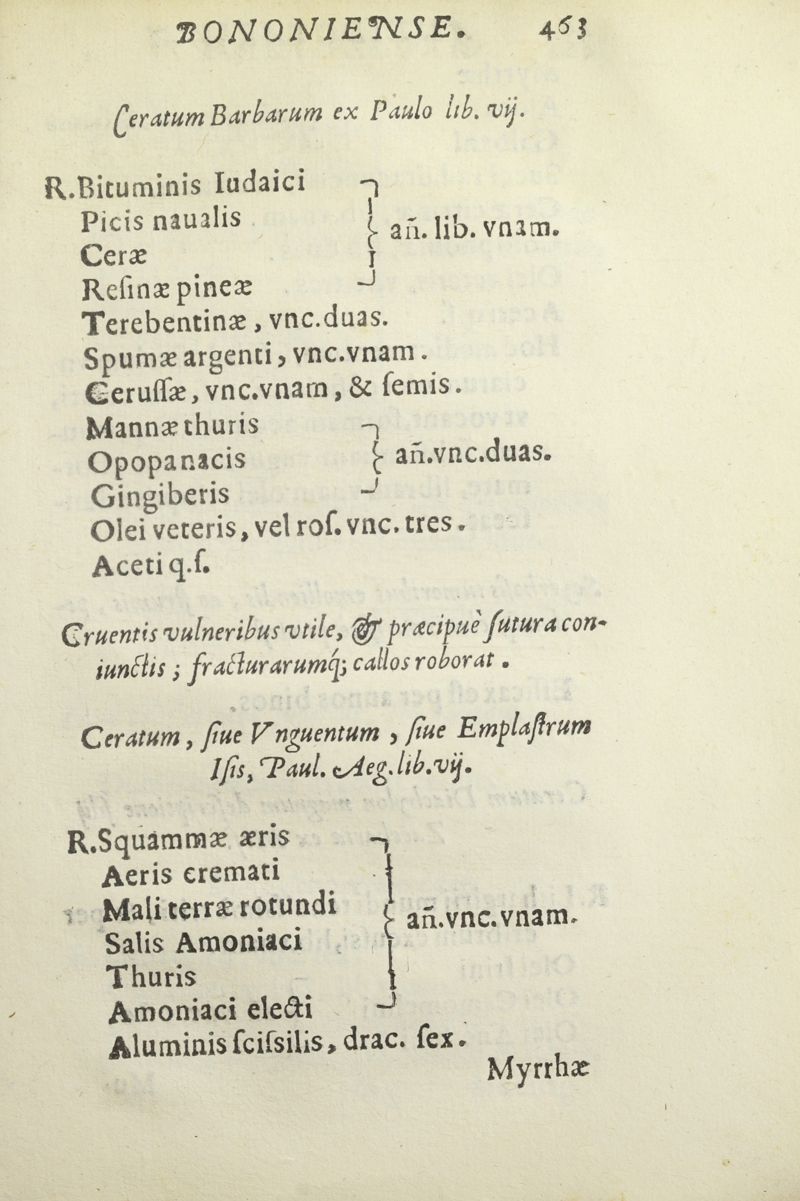 BONONIENSE. 463
Ceratum Barbarum ex Paulo lib. vij.
R.Bituminis Iudaici
Picis naualis
añ. lib. vnam.
Ceræ
Reſinæ pineæ
Terebentinæ, vnc.duas.
Spumæ argenti, vnc.vnam.
Ceruſſæ, vnc.vnam, & ſemis.
Mannæ thuris
Opopanacis
añ.vnc.duas.
Gingiberis
Olei veteris, vel roſ. vnc. tres.
Aceti q.ſ.
Cruentis vulneribus vtile, & præcipuè ſutura con-
iunctis; fracturarumq; callos roborat.
Ceratum, ſiue Vnguentum, ſiue Emplaſtrum
Iſis, Paul. Aeg. lib.vij.
R.Squammæ æris
Aeris cremati
Mali terræ rotundi
añ.vnc.vnam.
Salis Amoniaci
Thuris
Amoniaci electi
Aluminis ſciſsilis, drac. ſex.
Myrrhæ